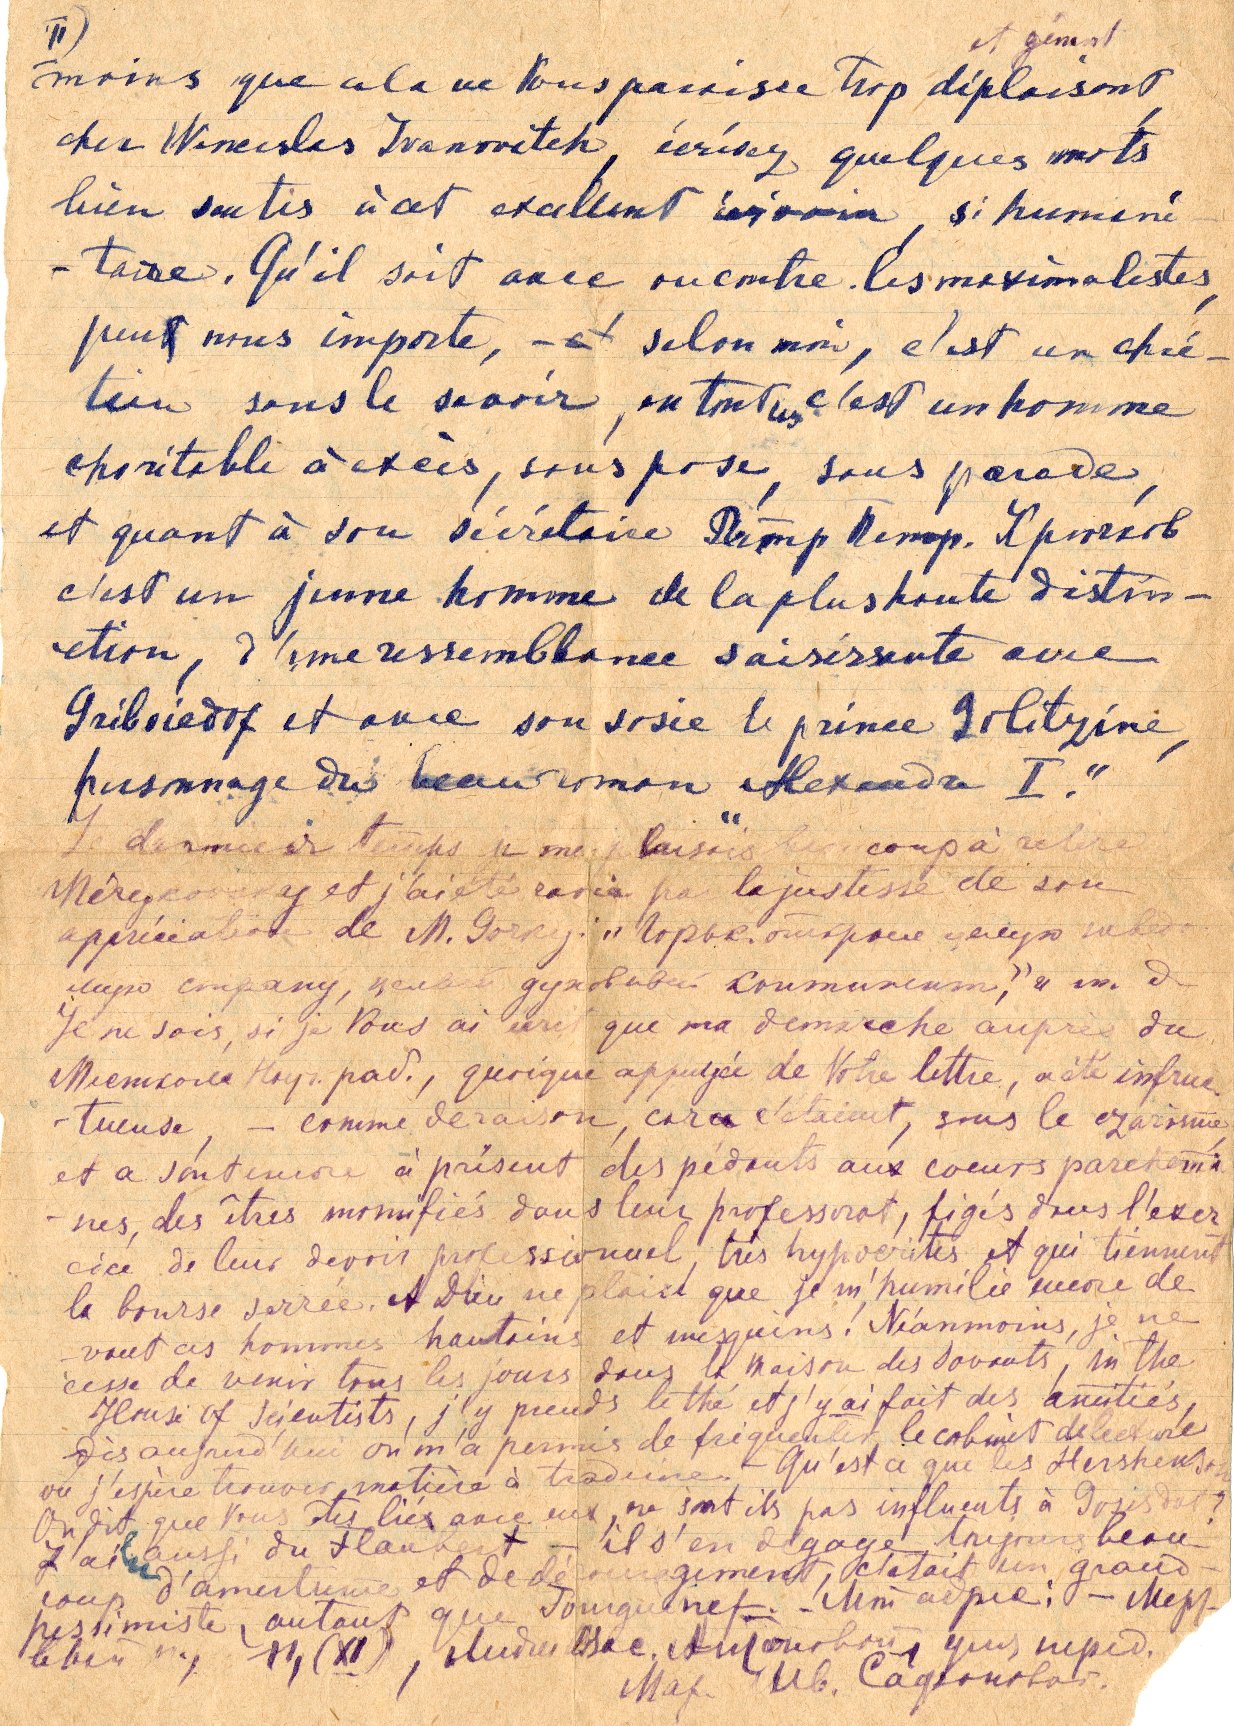 II)
et gênant
moins que cela ne Vous paraisse trop déplaisant,
cher Wenceslas Ivanovitch, écrivez quelques mots
bien sentis à cet excellent écrivain, si humani-
-taire. Qu'il soit avec ou contre les maximalistes,
peut nous importe, – et selon moi, c'est un chré-
tien sans le savoir, en tout cas c'est un homme
charitable à excès, sans pose, sans parade,
et quant à son sécrétaire Петр Петр. Крючков
c'est un jeune homme de la plus haute distin-
ction, d'une ressemblance saisissante avec
Griboiedof et avec son sosie le prince Golitzine,
personnage du beau roman "Alexandre I."
Le dernier temps je me plaisais beaucoup à relire
Mérejkovsky et j'ai été ravie par la justesse de son
appréciation de M. Gorky: "Горьк. открыл целую неведо-
мую страну, целый духовный континент," и т. д.
Je ne sais, si je Vous ai écrit que ma démarche auprès du
Месткома Науч. раб., quoique appuyée de Votre lettre, a été infruc-
-tueuse, – comme de raison, car c'étaient, sous le czarisme,
et a sont encore à présent des pédants aux coeurs parchemi-
-nés, des êtres momifiés dans leur professorat, figés dans l'exer-
cice de leur devoir professionnel, très hypocrites et qui tiennent
la bourse serrée. A Dieu ne plaise que je m'humilie encore de
-vant ces hommes hautains et mesquins! Néanmoins, je ne
cesse de venir tous les jours dans la Maison des Savants, in the
House of Scientists, j'y prends le thé et j'y ai fait des amitiés,
Dès aujourd'hui on m'a permis de fréquenter le cabinet de lecture
où j'espère trouver matière à traduire. – Qu'est ce que les Hershenson
On dit que Vous êtes liés avec eux, ne sont ils pas influents à Gosisdat?
J'ai lu aussi du Flaubert – il s'en dégage toujours beau-
coup d'amertume et de découragement, c'était un grand
pessimiste, autant que Tourguenef. – Мой адрес: – Мерз-
11, (XI), Исак. Антоновой, для перед.
Мар. Ив. Сафоновой.